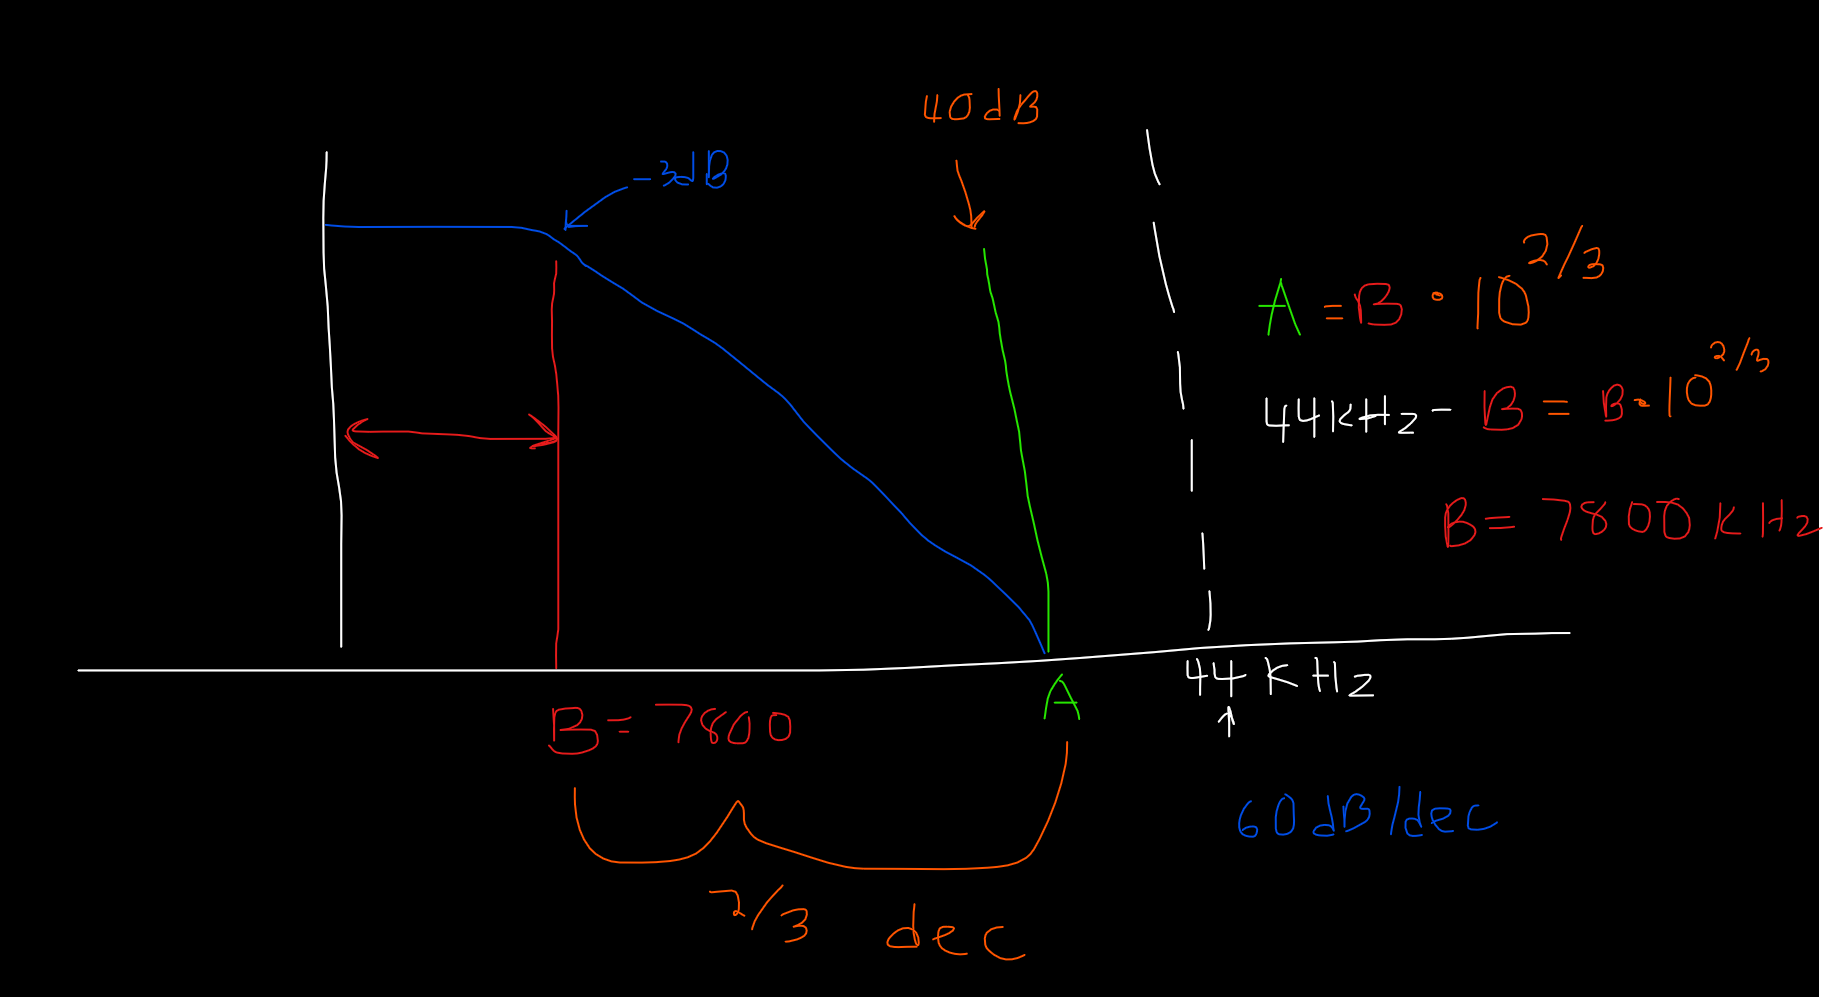 40dB
-3dB
A = B · 10^2/3
44kHz - B = B · 10^2/3
B = 7800 kHz
44 kHz
A
B = 7800
60dB/dec
2/3 dec